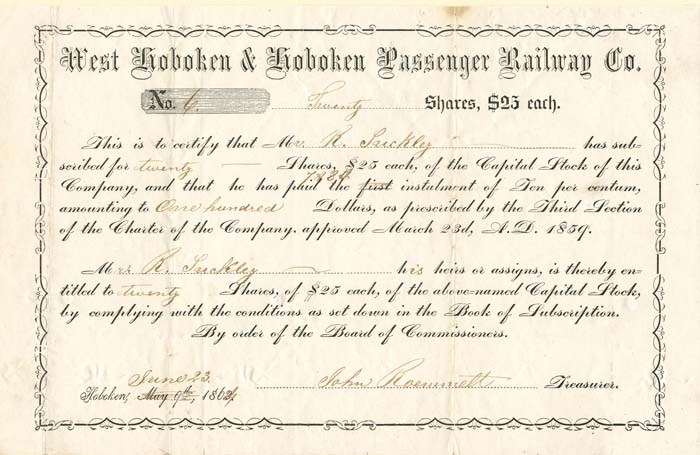 West Hoboken & Hoboken Passenger Railway Co.
No. 6. Twenty Shares, $25 each.
This is to certify that Mr. R. has sub-
scribed for twenty Shares, $25 each, of the Capital Stock of this
Company, and that he has paid the first instalment of Ten per centum,
amounting to One hundred Dollars, as prescribed by the Third Section
of the Charter of the Company, approved March 23d, A.D. 1859.
Mr. R. his heirs or assigns, is thereby en-
titled to twenty Shares, of $25 each, of the above-named Capital Stock,
by complying with the conditions as set down in the Book of Subscription.
By order of the Board of Commissioners.
June 23.
Hoboken, May 9th, 186 John Treasurer.